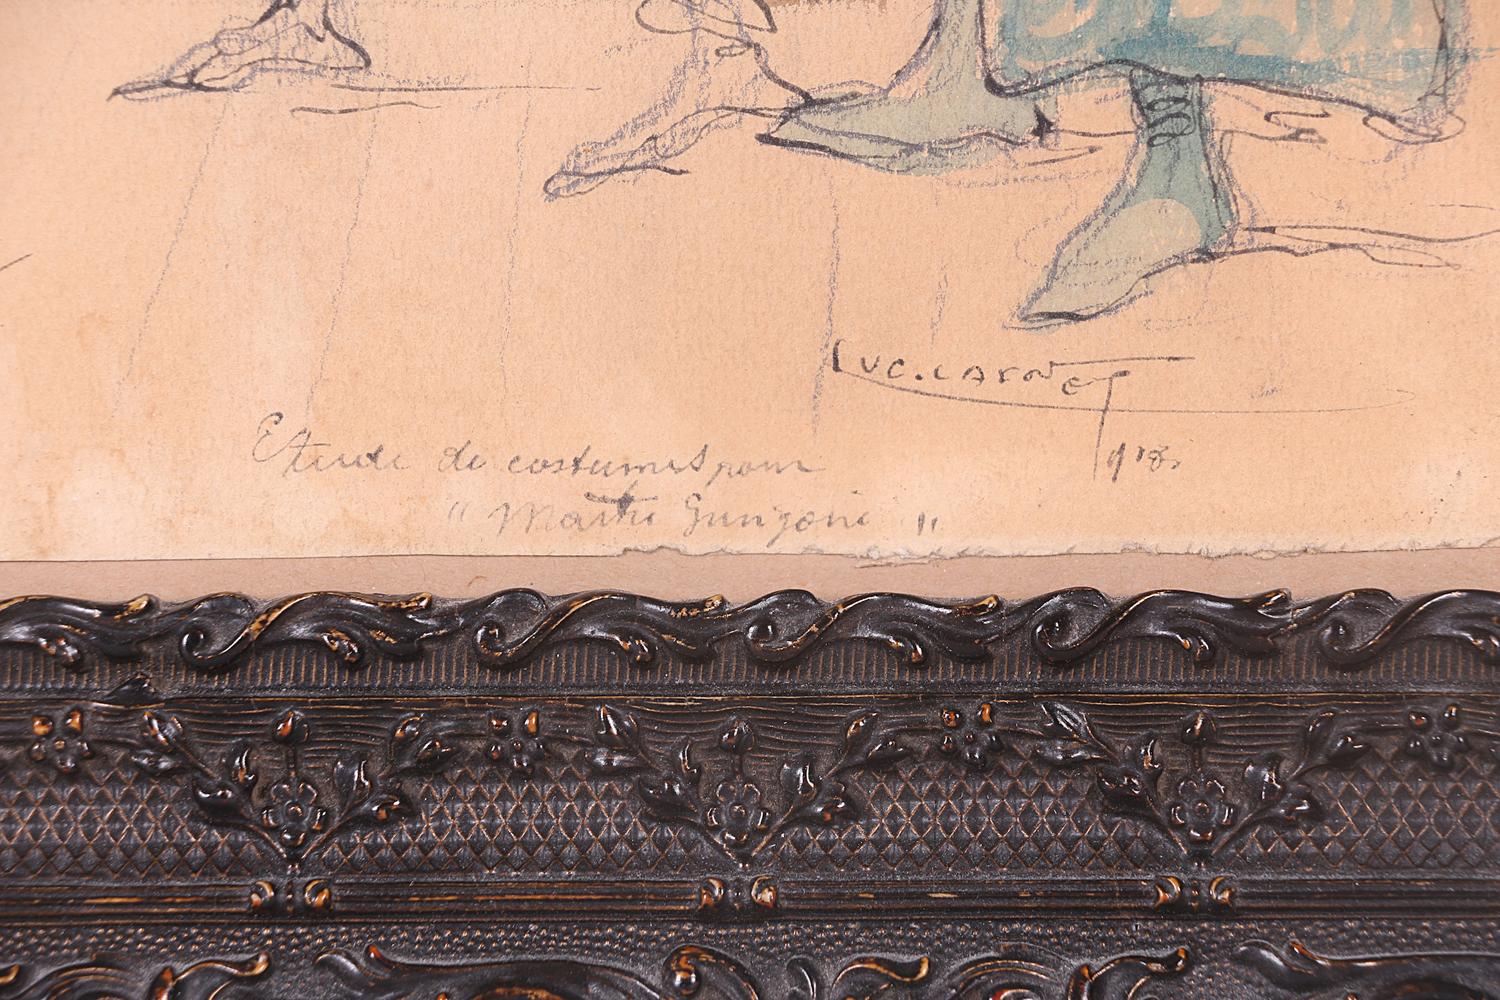 LUC. LARNET
1918.
Etude de costumes pour
"Maitre Gungoire"